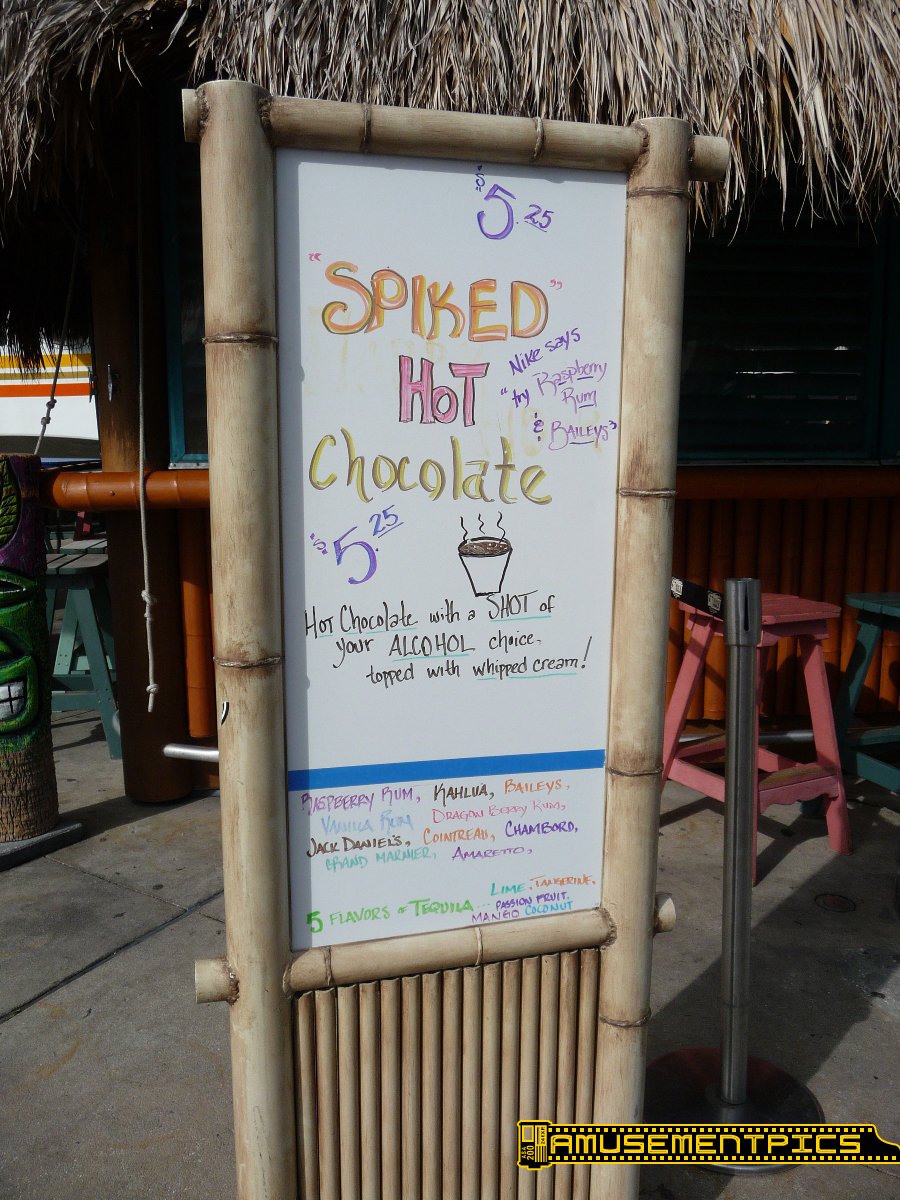 $5.25
"SPIKED"
HOT
Chocolate
Nike says
"try Raspberry
Rum
& BAILEYS"
$5.25
Hot Chocolate with a SHOT of
your ALCOHOL choice,
topped with whipped cream!
RASPBERRY RUM, KAHLUA, BAILEYS,
VANILLA RUM DRAGON BERRY RUM,
JACK DANIEL'S, COINTREAU, CHAMBORD,
GRAND MARNIER, AMARETTO,
5 FLAVORS of TEQUILA... LIME, TANGERINE,
PASSION FRUIT,
MANGO COCONUT
ASA 200 AMUSEMENTPICS